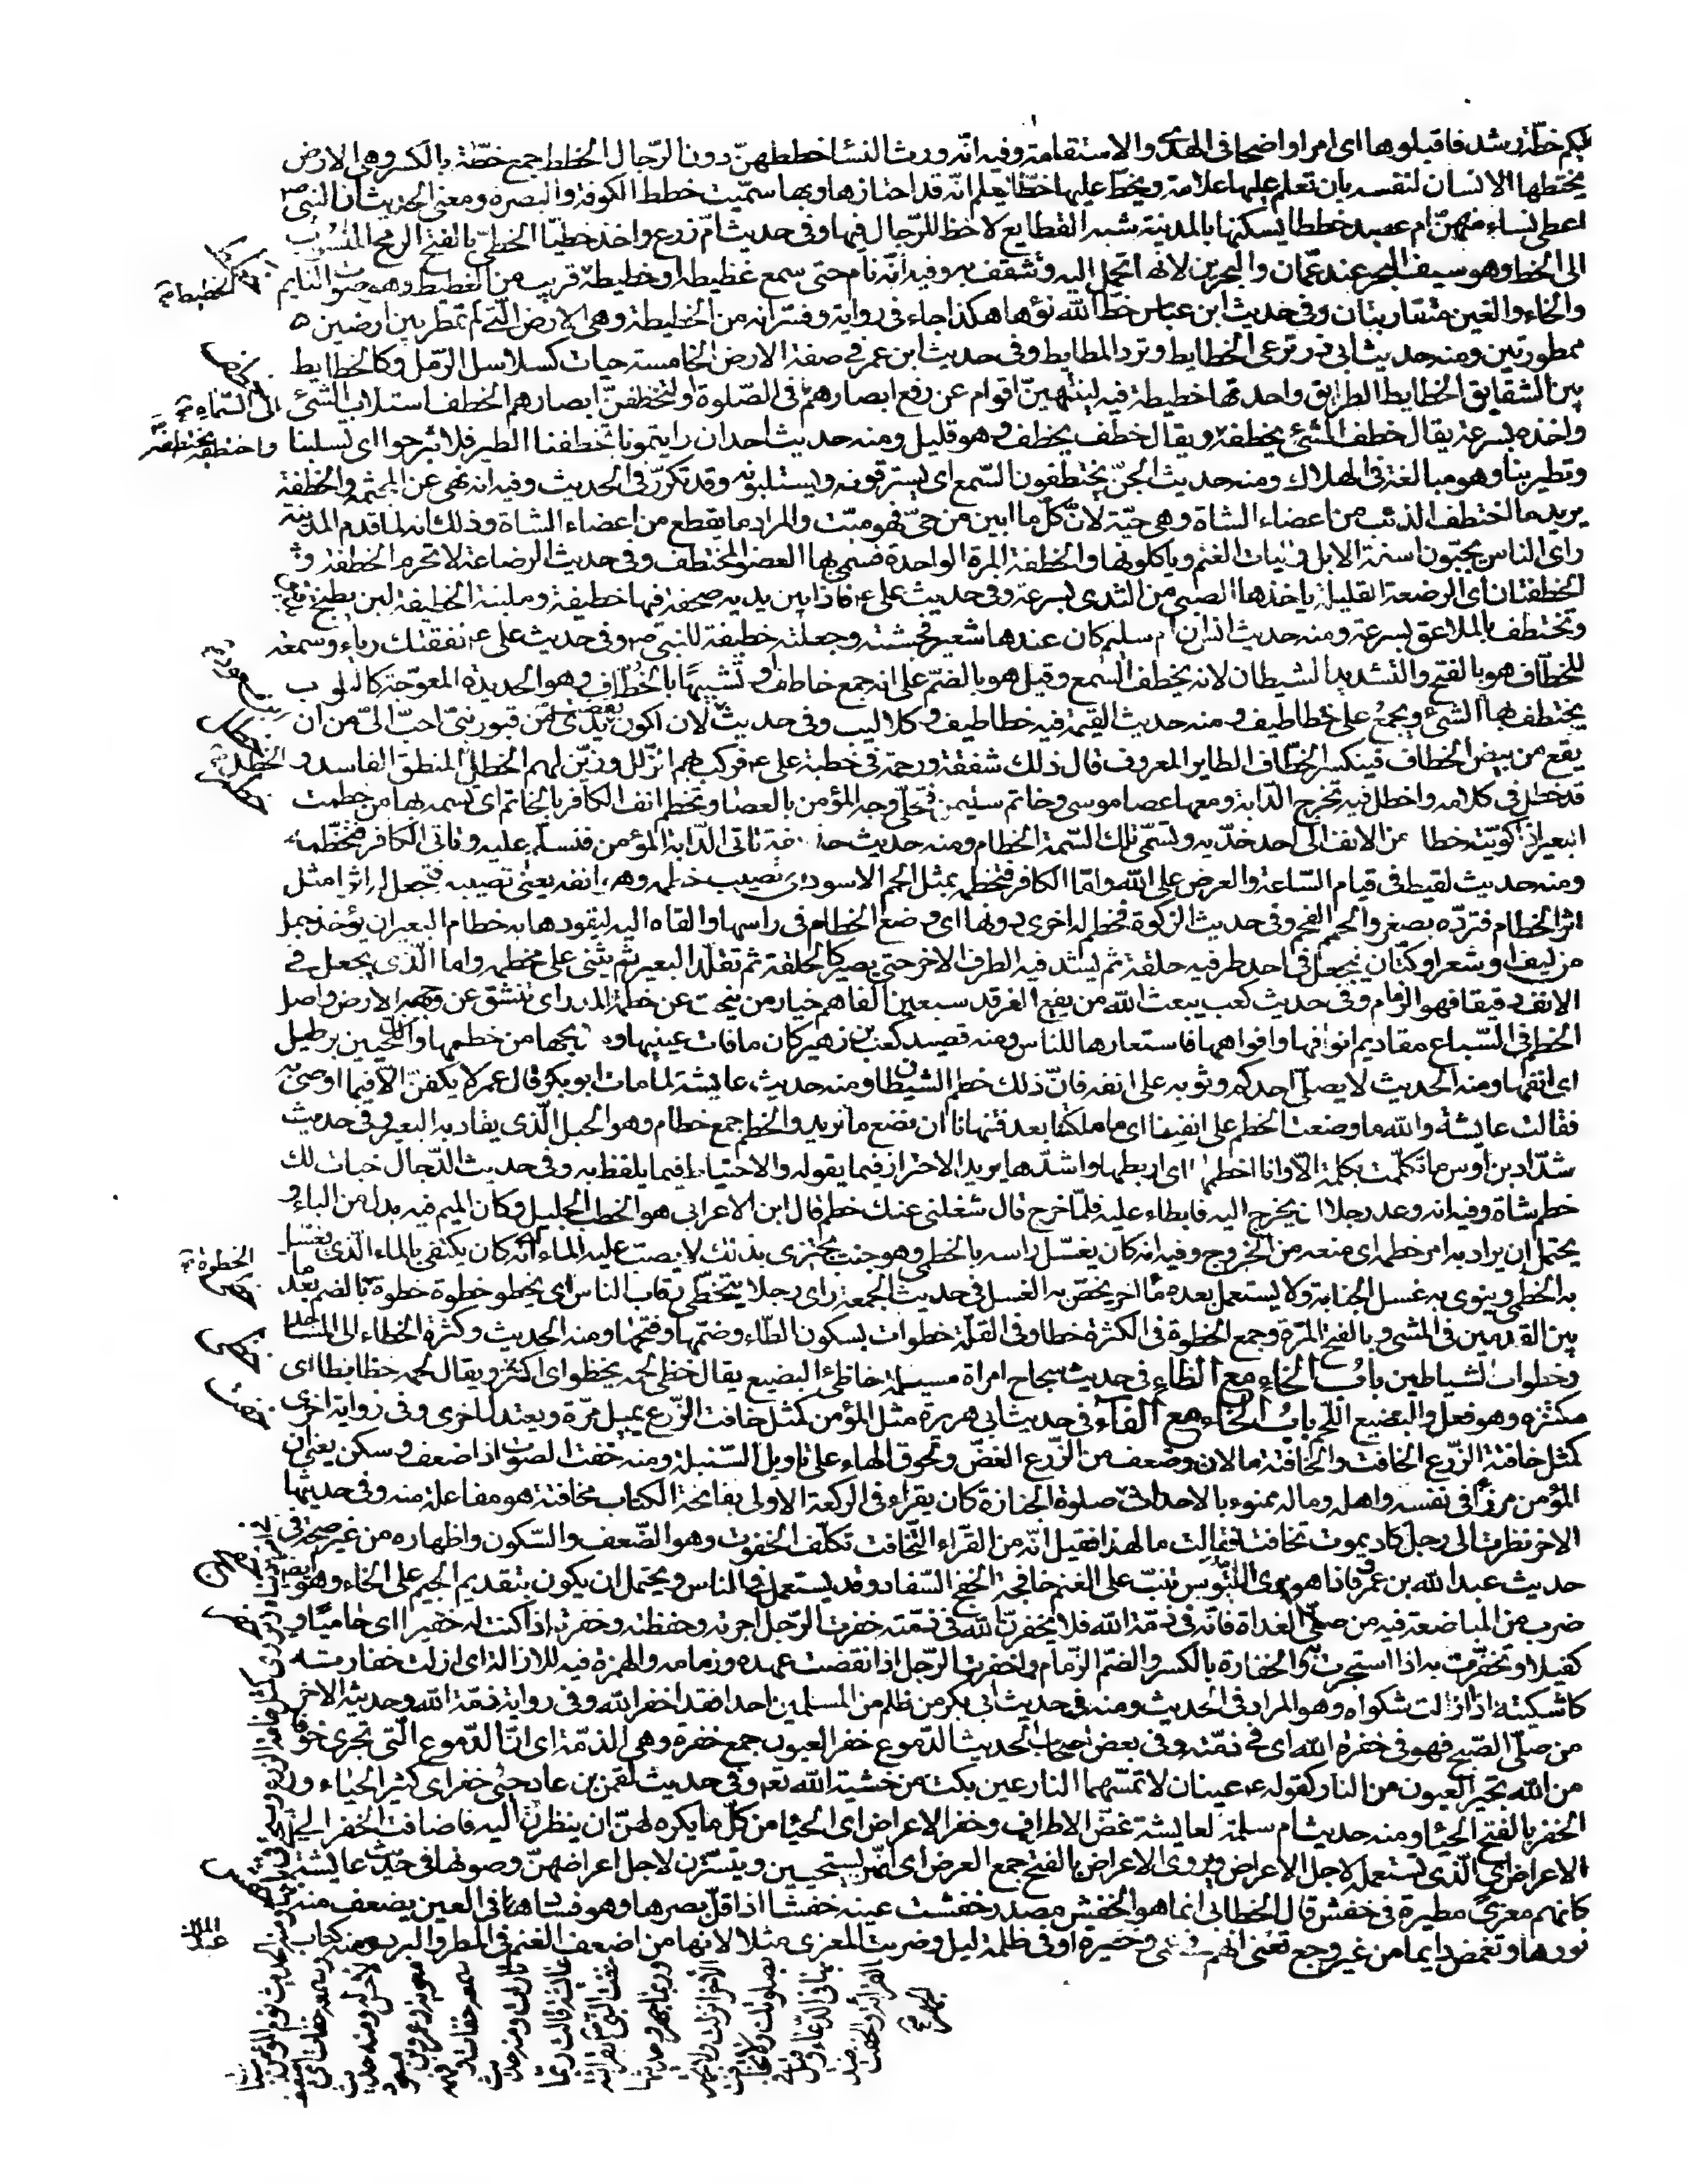 عليكم خطّة رشد فاقبلوها اى امرا واضحا فى الهدى والاستقامة وفيه انّه ورث النسا خططهنّ دون الرّجال الخطط جمع خطّة بالكسر وهى الارض
يختطها الانسان لنفسه بان تعلم عليها علامة ويخطّ عليها خطّا يعلم انّه قد احتازها وبها سمّيت خطط الكوفة والبصرة ومعنى الحديث ان النبى ص
اعطى نساء منهنّ ام عبد خططا يسكنها بالمدينة شبه القطايع لا حظ للرّجال فيها وفى حديث امّ زرع واخذ خطيّا الخطىّ بالفتح الرمح المنسوب
الى الخط وهو سيف البحر عند عمّان والبحرين لانها تحمل اليه وتثقف به وفيه انّه نام حتى سمع غطيطه او خطيطه قريب من الغطيط وهو صوت النايم
والخاء والغين متقاربتان وفى حديث ابن عباس خطّ الله نوؤها هكذا جاء فى رواية وفسّر انه من الخطيطة وهى الارض التى لم تمطر بين ارضين
ممطورتين ومنه حديث ابى ذر ترعى الخطايط وترد المطايط وفى حديث ابن عمر فى صفة الارض الخامسة حيات كسلاسل الرّمل وكالخطايط
بين الشقايق الخطايط الطرايق واحدتها خطيطة فيه لينتهينّ اقوام عن رفع ابصارهم فى الصّلوة او لتخطفنّ ابصارهم الخطف استلاب الشئ
واخذه بسرعة يقال خطف الشئ يخطفه ويقال خطف يخطف وهو قليل ومنه حديث احد ان رايتمونا تخطفنا الطير فلا تبرحوا اى تسلبنا
وتطير بنا وهو مبالغة فى الهلاك ومنه حديث الجنّ يختطفون السّمع اى يسترقونه ويستلبونه وقد تكرّر فى الحديث وفيه انه نهى عن المجثمة والخطفة
يريد ما اختطف الذئب من اعضاء الشاة وهى حيّة لانّ كلّ ما ابين من حىّ فهو ميّت والمراد ما يقطع من اعضاء الشاة وذلك انه لما قدم المدينة
راى الناس يجبّون اسنمة الابل واليات الغنم وياكلونها والخطفة المرة الواحدة فسمى بها العضو المختطف وفى حديث الرضاعة لا تحرم الخطفة و
الخطفتان اى الرضعة القليلة ياخذها الصبى من الثدى بسرعة وفى حديث على ع فاذا بين يديه صحفة فيها خطيفة وملبنة الخطيفة لبن يطبخ بدقيق
وتختطف بالملاعق بسرعة ومنه حديث انس ان ام سليم كان عندها شعير فجشته وجعلته خطيفة للنبى ص وفى حديث على ع نفقتك رياء وسمعة
للخطّاف هو بالفتح والتشديد الشيطان لانه يخطف السّمع وقيل هو بالضمّ على انه جمع خاطف او تشبيها بالخطّاف وهو الحديدة المعوجّة كالكلوب
يختطف بها الشئ ويجمع على خطاطيف ومنه حديث القيمة فيه خطاطيف وكلاليب وفى حديث لان اكون نفضت يدىّ من قبور بنىّ احبّ الىّ من ان
يقع من بيض الخطاف فينكسر الخطّاف الطاير المعروف قال ذلك شفقة ورحمة فى خطبة على ع فركب بهم الزّلل وزيّن لهم الخطل المنطق الفاسد و
قد خطل فى كلامه واخطل فيه تخرج الدّابة ومعها عصا موسى وخاتم سليمن فتحلّى وجه المؤمن بالعصا وتخطم انف الكافر بالخاتم اى تسمه بها من خطمت
البعير اذا كويته خطا من الانف الى احد خدّيه وتسمّى تلك السّمة الخطام ومنه حديث حذيفة تاتى الدّابة المؤمن فتسلّم عليه وتاتى الكافر فتخطمه
ومنه حديث لقيط فى قيام السّاعة والعرض على الله وامّا الكافر فتخطمه بمثل الحمم الاسود اى تصيب خطمه وهو انفه يعنى تصيبه فتجعل له اثرا مثل
اثر الخطام فتردّه بصغر والحمم الفحم وفى حديث الزكوة فخطم له اخرى دونها اى وضع الخطام فى راسها والقاه اليه ليقودها به خطام البعير ان يؤخذ حبل
من ليف او شعر او كتّان فيجعل فى احد طرفيه حلقة ثم يشد فيه الطرف الاخر حتى يصير كالحلقة ثم تقلّد البعير ثم يثنى على مخطمه واما الّذى يجعل فى
الانف دقيقا فهو الزمام وفى حديث كعب يبعث الله من بقيع الغرقد سبعين الفا هم خيار من ينحت عن خطمه المدر اى تنشق عن وجهه الارض واصل
الخطم فى السّباع مقاديم انوافها وافواهها فاستعارها للناس ومنه قصيد كعب بن زهير كان ما فات عينيها ومذبحها من خطمها ومن اللّحيين برطيل
اى انفها ومنه الحديث لا يصلّ احدكم وثوبه على انفه فانّ ذلك خطم الشيطان ومنه حديث عايشة لما مات ابو بكر قال عمر لا يكفنّ الّا فيما اوصى به
فقالت عايشة والله ما وضعت الخطم على انفنا اى ما ملكتنا بعد فتنهانا ان نضع ما نريد والخطم جمع خطام وهو الحبل الّذى يقاد به البعير وفى حديث
شدّاد بن اوس ما تكلّمت بكلمة الّا وانا اخطمها اى اربطها واشدّها يريد الاحتراز فيما يقوله والاحتياط فيما يلفظ به وفى حديث الدّجال خبات لك
خطم شاة وفيه انه وعد رجلا ان يخرج اليه فابطاء عليه فلمّا خرج قال شغلنى عنك خطم قال ابن الاعرابى هو الخطب الجليل وكان الميم فيه بدل من الباء و
يحتمل ان يراد به امر خطمه اى منعه من الخروج وفيه انه كان يغسّل راسه بالخطمى وهو جنب يجتزى بذلك لا يصبّ عليه الماء اى انّه كان يكتفى بالماء الّذى يغسل
به الخطمى وينوى به غسل الجنابة ولا يستعمل بعده ماء اخر يخصّ به الغسل فى حديث الجمعة راى رجلا يتخطّى رقاب الناس اى يخطو خطوة خطوة بالضم بعد ما
بين القدمين فى المشى وبالفتح المرّة وجمع الخطوة فى الكثرة خطا وفى القلّة خطوات بسكون الطّاء وضمّها وفتحها ومنه الحديث وكثرة الخطاء الى المساجد
وخطوات الشياطين باب الخاء مع الظاء فى حديث سجاح امراة مسيلمة خاظئ البضيع يقال خظى لحمه يخظو اى اكتنز ويقال لحمه خظا بظا اى
مكتنز وهو فعل والبضيع اللّحم باب الخاء مع الفاء فى حديث ابى هريرة مثل المؤمن كمثل خافت الزّرع يميل مرّة ويعتدل اخرى وفى رواية اخرى
كمثل خافتة الزّرع الخافت والخافتة ما لان وضعف من الزّرع الغضّ ولحوق الهاء على تاويل السّنبلة ومنه خفت الصوت اذا ضعف وسكن يعنى ان
المؤمن مرزّا فى نفسه واهله وماله ممنوء بالاحداث صلوة الجنازة كان يقراء فى الركعة الاولى بفاتحة الكتاب مخافتة هو مفاعلة منه وفى حديثها
الاخر نظرت الى رجل كاد يموت تخافتا فقالت ما لهذا فقيل انّه من القرّاء التّخافت تكلّف الخفوت وهو الضّعف والسّكون واظهاره من غير صحة فى
حديث عبد الله بن عمر فاذا هو يرى التّيوس تنبّ على الغنم خافجة الخفج السّفاد وقد يستعمل فى الناس ويحتمل ان يكون بتقديم الجيم على الخاء وهو ايضا
ضرب من المباضعة فيه من صلّى الغداة فانّه فى ذمّة الله فلا يخفرنّ الله فى ذمّته خفرت الرّجل اجرته وحفظته وخفرته اذا كنت له خفيرا اى حاميا و
كفيلا وتخفّرت به اذا استجرت به والخفارة بالكسر والضمّ الزّمام واخفرت الرّجل اذا نقضت عهده وزمامه والهمزة فيه للازالة اى ازلت خفارته
كاشكيته اذا ازلت شكواه وهو المراد فى الحديث ومنه فى حديث ابى بكر من ظلم من المسلمين احدا فقد اخفر الله وفى رواية ذمّة الله وحديثه الاخر
من صلّى الصّبح فهو فى خفرة الله اى فى ذمّته وفى بعض الحديث الدّموع خفر العيون جمع خفرة وهى الذمّة اى انّ الدّموع الّتى تجرى خوفا
من الله تجير العيون من النار كقوله ع عينان لا تمسّهما النار عين بكت من خشية الله تع وفى حديث لقمن بن عاد حيىّ خفر اى كثير الحياء و
الخفر بالفتح الحياء ومنه حديث ام سلمة لعايشة غضّ الاطراف وخفر الاعراض اى الحيا من كلّ ما يكره لهنّ ان ينظرن اليه فاضافت الخفر الى
الاعراض اى الّذى يستعمل لاجل الاعراض ويروى الاعراض بالفتح جمع العرض اى انّهنّ يستحيين ويتستّرن لاجل اعراضهنّ وصونها فى حديث عايشة
كانهم معزى مطيرة فى خفش قال الخطابى انما هو الخفش مصدر خفشت عينه خفشا اذا قلّ بصرها وهو فساد فى العين يضعف منه
نورها وتغمض دايما من غير وجع تعنى انهم فى عمى وحيرة او فى ظلمة ليل وضربت المعزى مثلا لانها من اضعف الغنم فى المطر والبرد
الخطيطة
الى السّماء
الخطوة